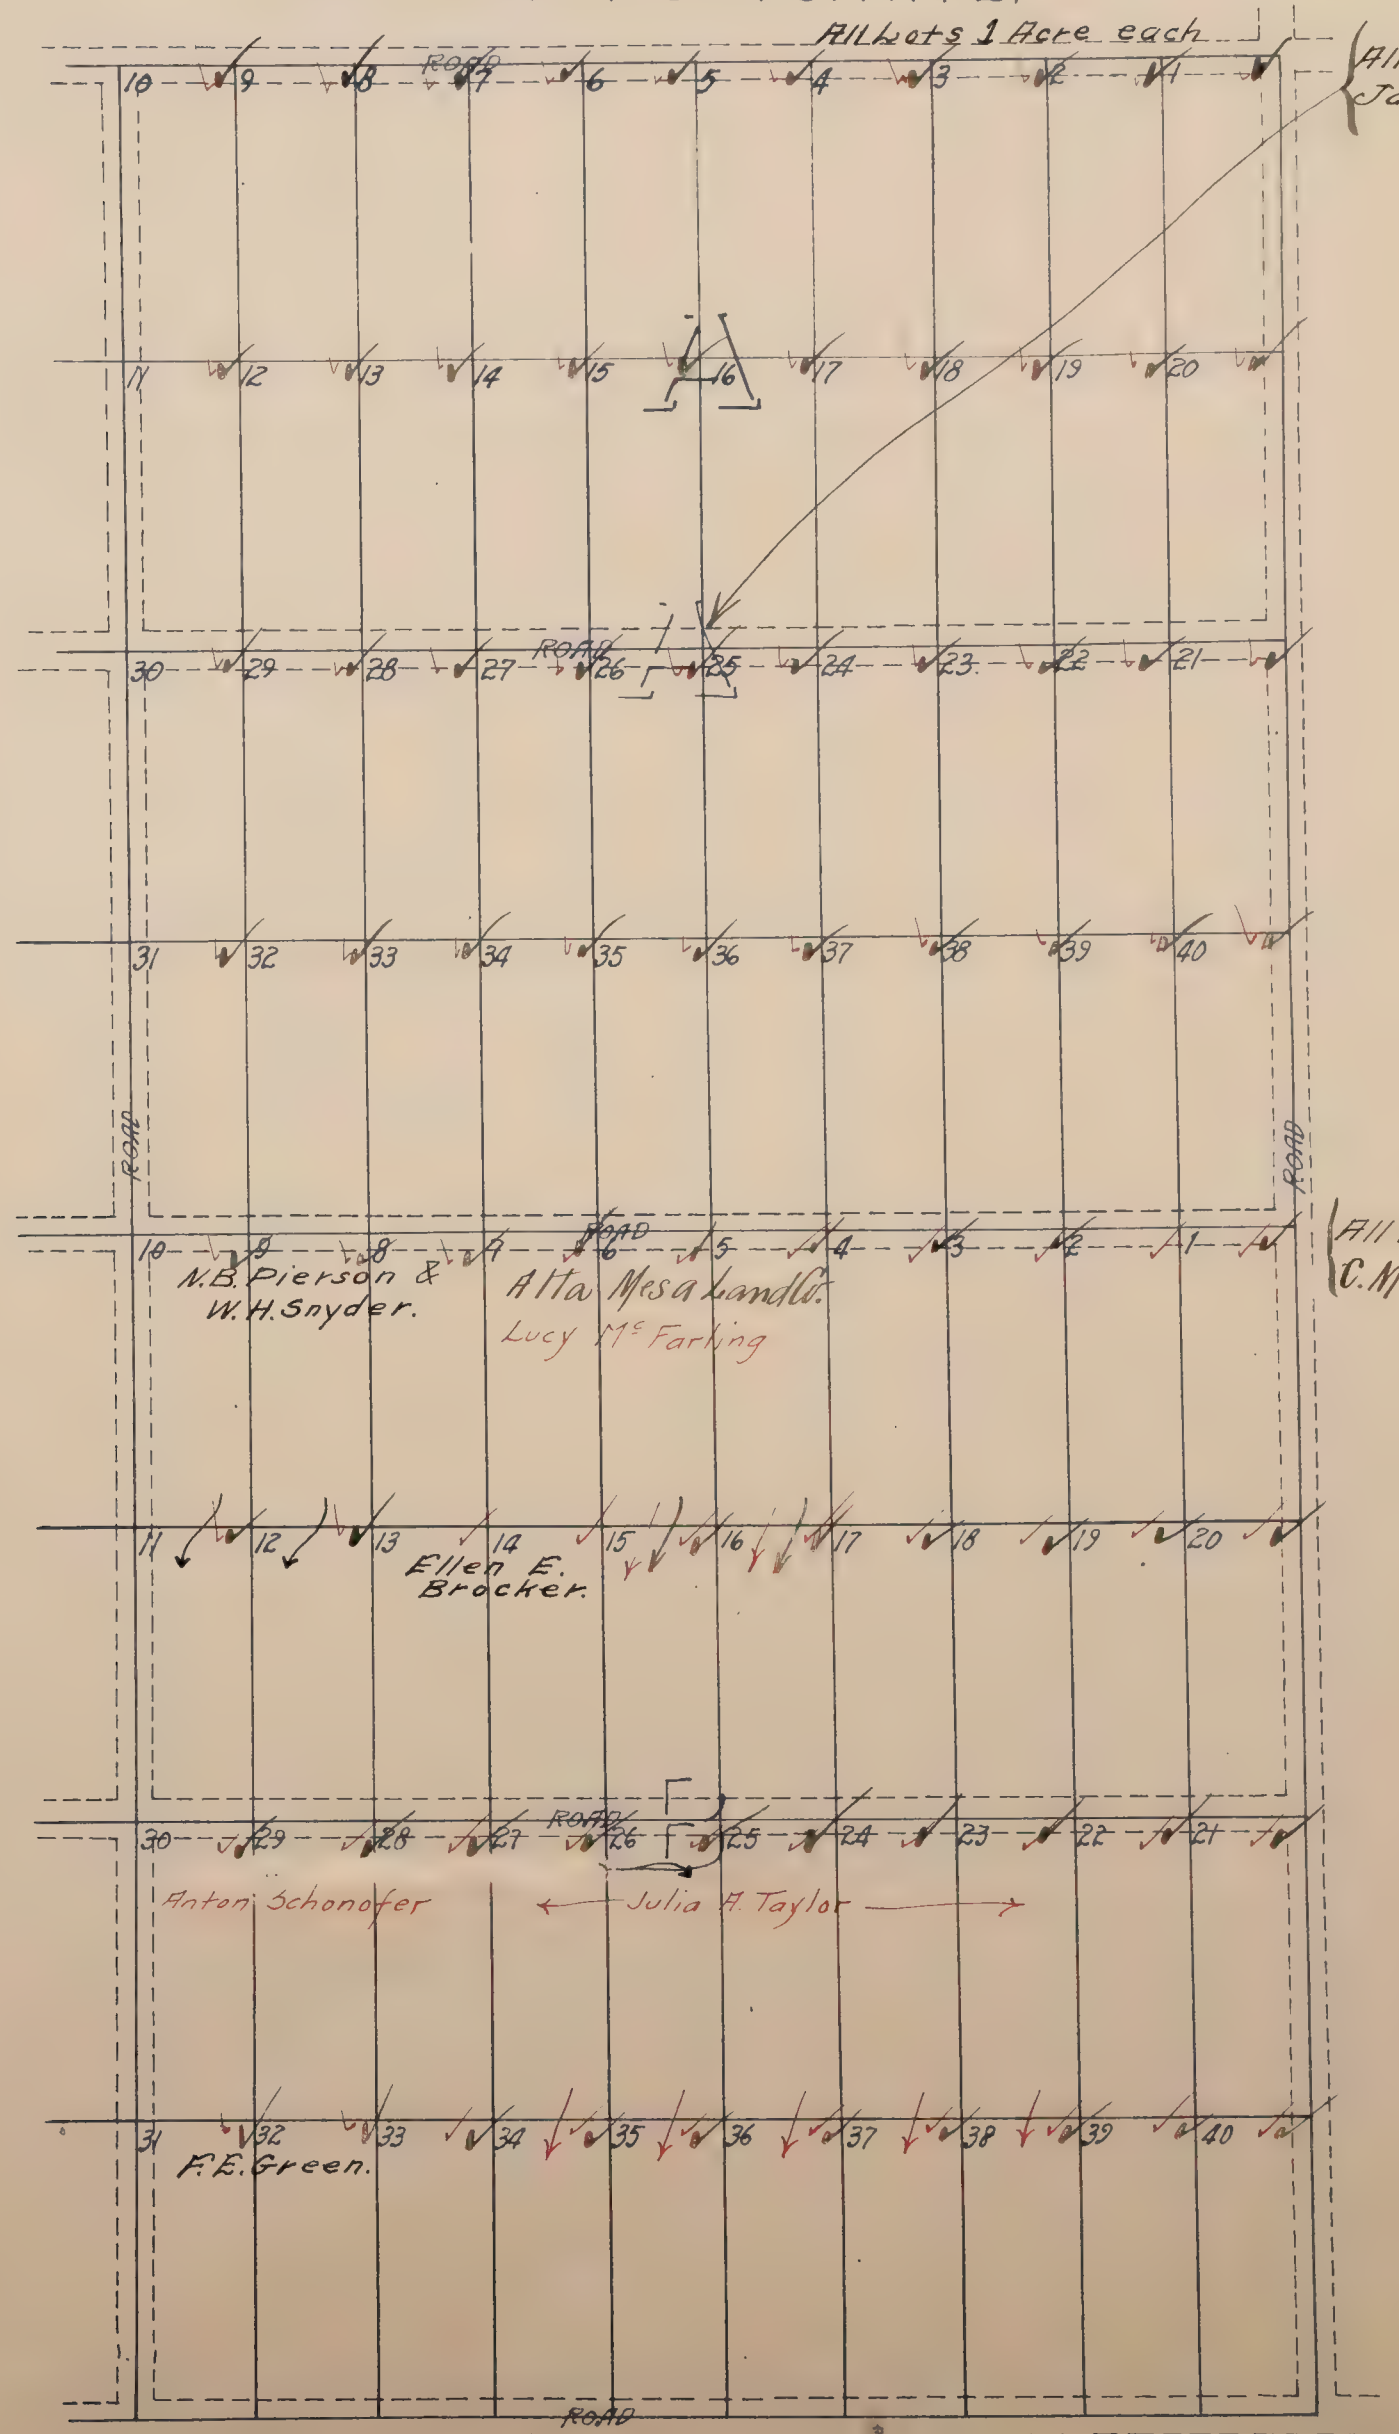 All Lots 1 Acre each
All
ROAD
10 9 8 7 6 5 4 3 2 1
11 12 13 14 15 16 17 18 19 20
A
ROAD
30 29 28 27 26 25 24 23 22 21
31 32 33 34 35 36 37 38 39 40
ROAD
ROAD
ROAD
10 9 8 7 6 5 4 3 2 1
All
C.M
N.B. Pierson &
W.H. Snyder.
Alta Mesa Land Co.
Lucy Mc Farling
11 12 13 14 15 16 17 18 19 20
Ellen E.
Brocker.
ROAD
30 29 28 27 26 25 24 23 22 21
Anton Schonofer
Julia A. Taylor
31 32 33 34 35 36 37 38 39 40
F.E. Green.
ROAD